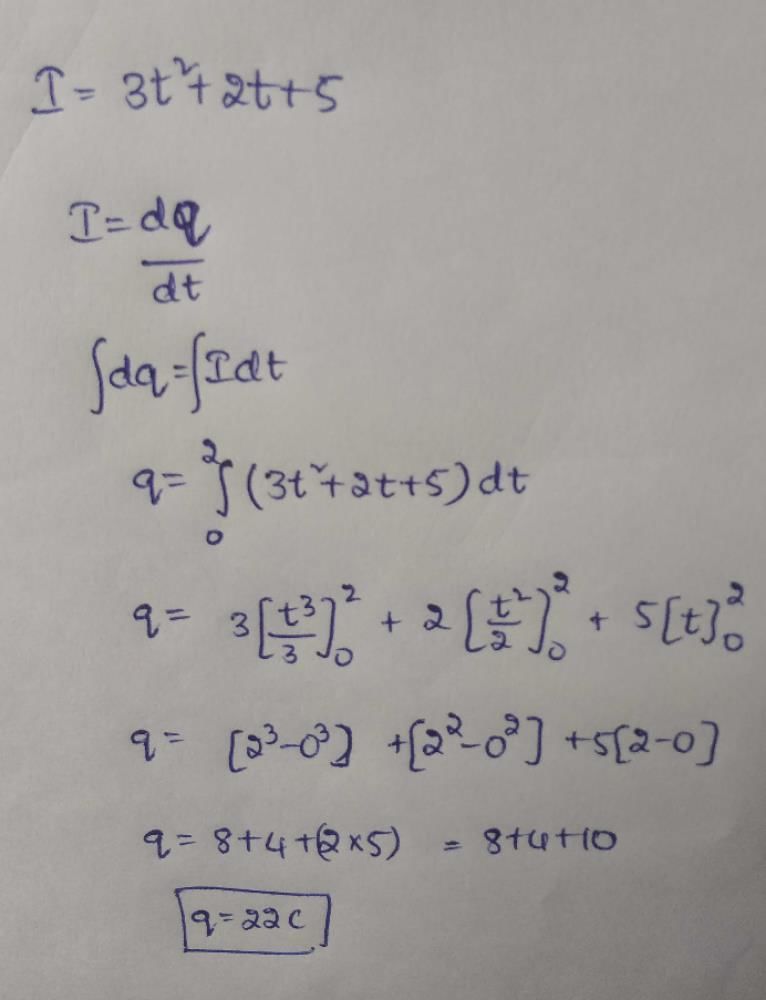 I = 3t²+2t+5
I = dq/dt
∫dq = ∫Idt
q = ₀∫² (3t²+2t+5)dt
q = 3[t³/3]₀² + 2[t²/2]₀² + 5[t]₀²
q = [2³-0³] +[2²-0²] +5[2-0]
q = 8+4+(2×5) = 8+4+10
q = 22C